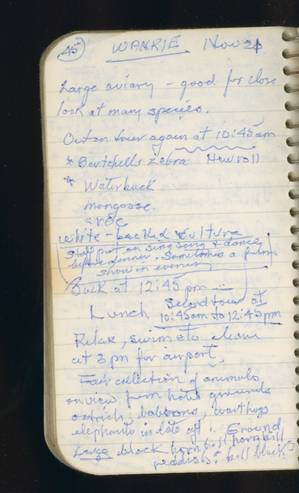 45 WANKIE Nov 21
Large aviary - good for close
look at many species.
Out on tour again at 10:45am
* Burtchells Zebra New roll
* Waterbuck
mongoose
white-backed vulture
Staff put on sing song & dance
before dinner. Sometimes a film
show in evening
Back at 12:45 pm
Lunch Second tour at
10:45am to 12:45pm
Relax, swim etc
at 3 pm for airport.
collection of animals
on view from hotel grounds
ostrich, baboons, warthogs
elephants in
Large black hornbill
bill black